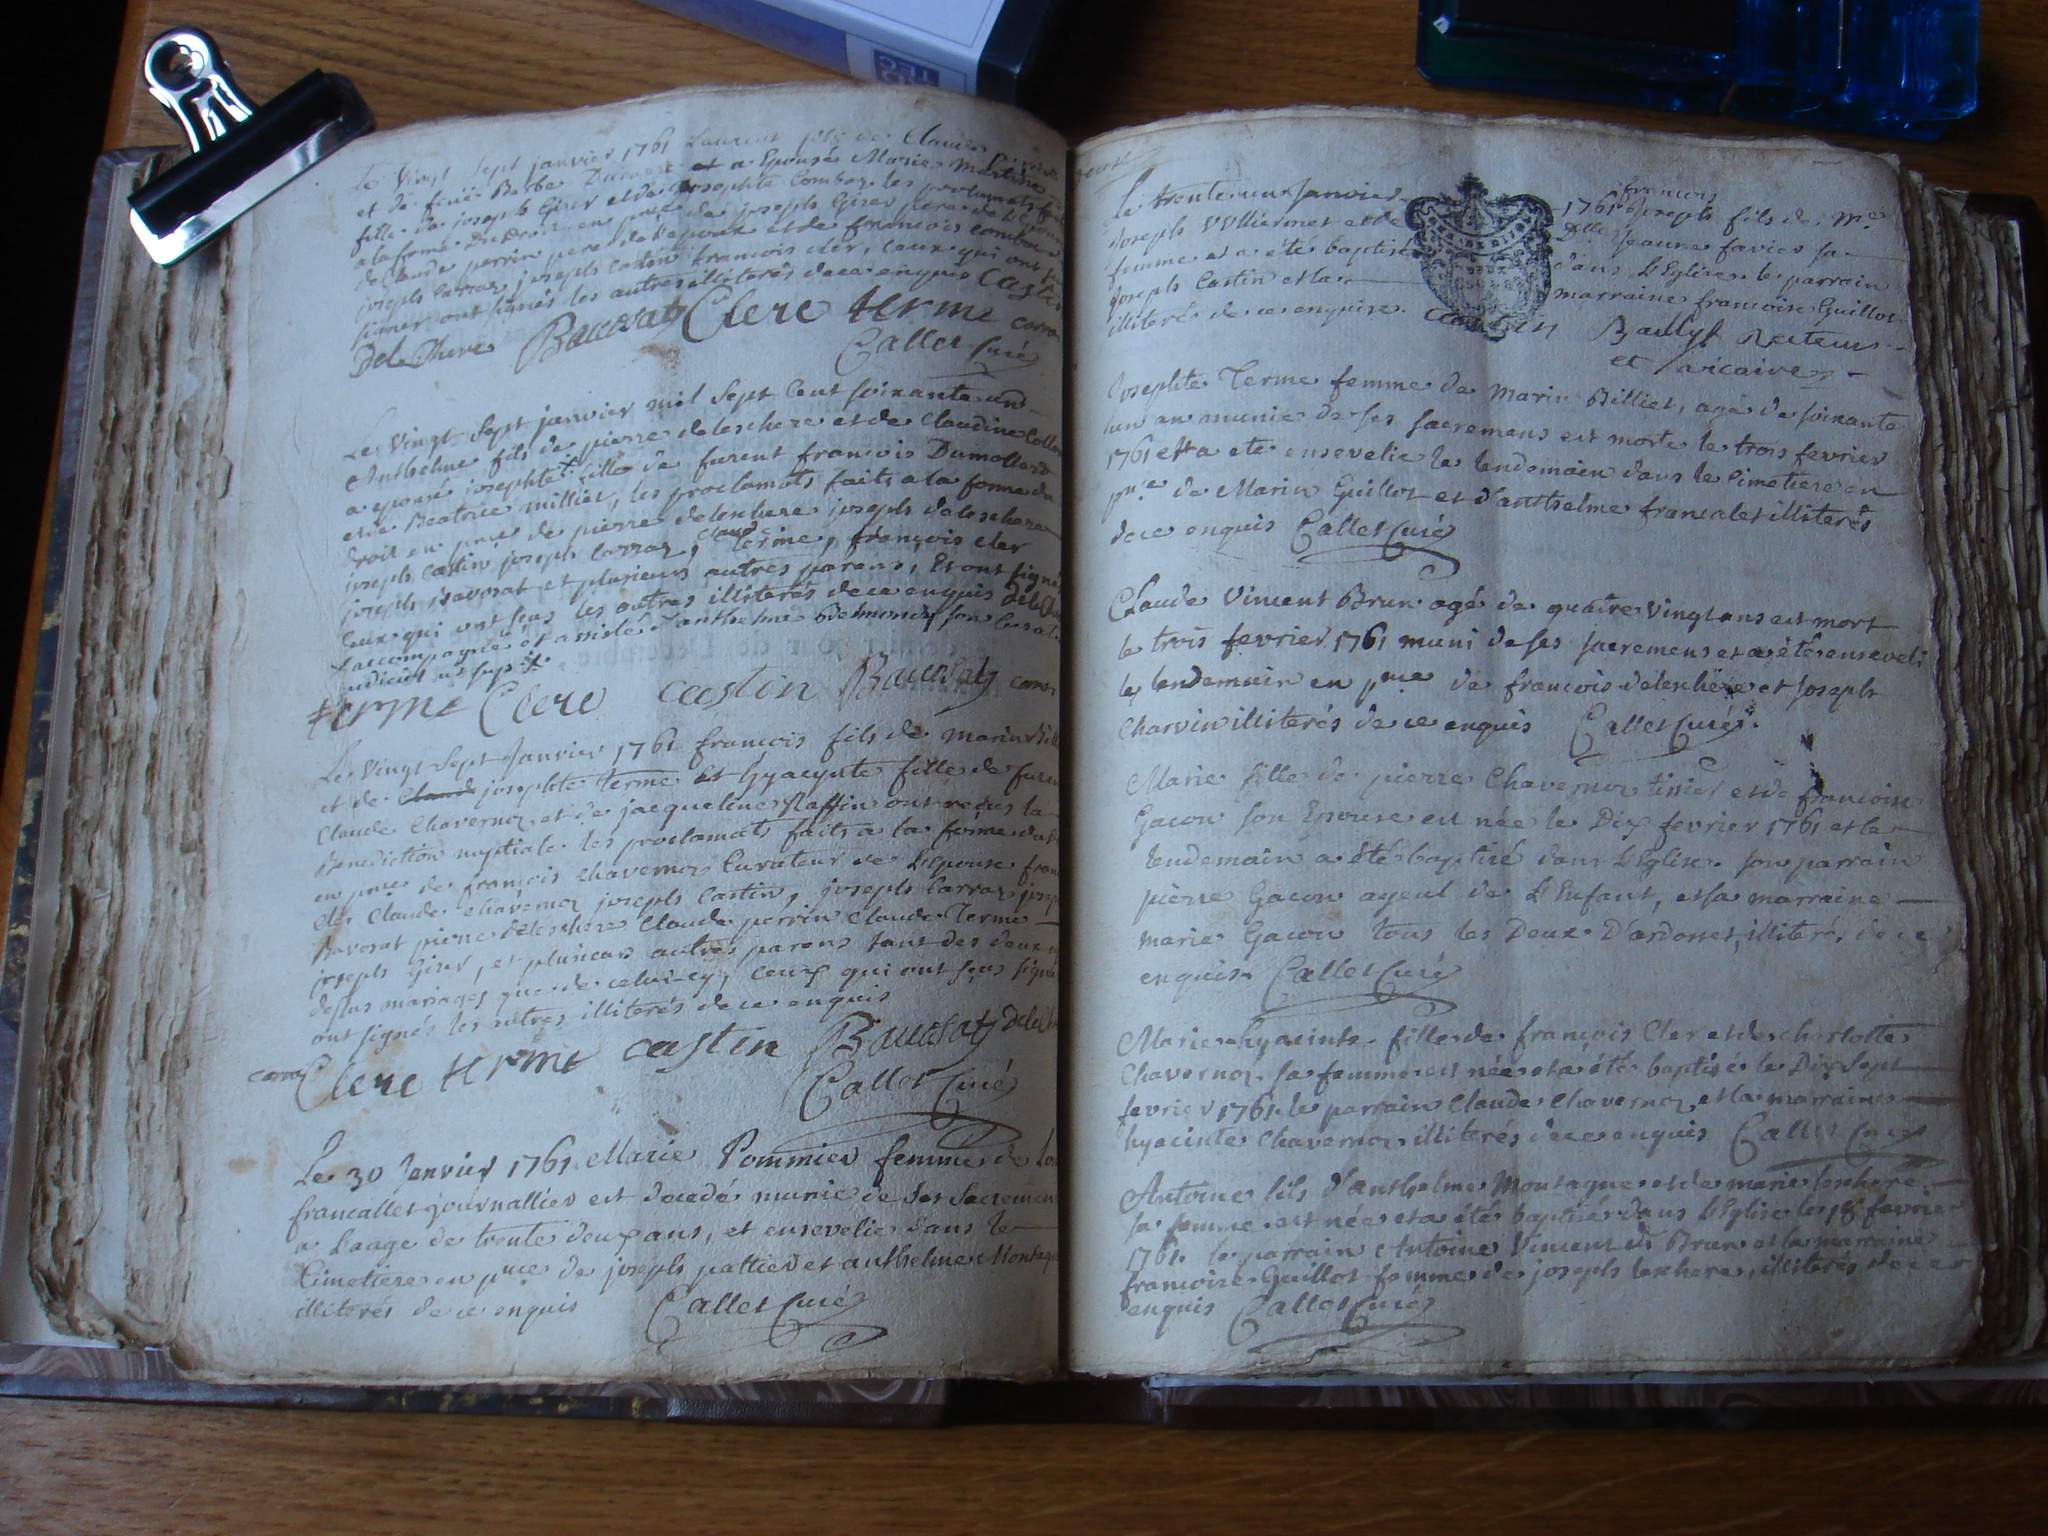 Le Vingt Sept janvier 1761 Laurent fils de Claude
et de feüe Barbe et a Epousée Marie Martine
fille de joseph Girer et de josephte Combaz les proclamats
a la forme Du Droit en pnce de joseph Girer pere de
de Claude perrin pere de l'epoux et de francois combaz
joseph Carraz joseph Castin francois cler, ceux qui ont
signer ont signés les autres illiterés de ce enquis Castin
DelesChere Bavosat Clere terme carra
Callet Curé
Le Vingt Sept janvier mil Sept Cent soixante un
Anthelme fils de pierre deleschere et de Claudine
a epousé josephte + fille de furent francois Dumollard
et de Beatrice milliet, les proclamats faits a la forme du
droit en pnce de pierre deleschere joseph deleschere
joseph Castin joseph Carraz, claude terme, françois cler
joseph Bavosat et plusieurs autres parens, Et ont signé
Ceux qui ont sçus les autres illiterés de ce enquis
+ accompagnée et assistée d'anthelme son
judiciel ut sup
terme Clere castin Bavosat carra
Le Vingt Sept Janvier 1761 francois fils de marin
et de Claude josephte terme Et hyacynte fille de
Claude Chavernoz et de jacqueline Raffin ont reçus la
Benediction nuptiale les proclamats faits a la forme du
en pnce de françois Chavernoz Curateur de L'Epouse
cler Claude Chavernoz joseph Castin, joseph Carraz
Bavosat pierre deleschere Claude perrin Claude Terme
joseph Girer, et plusieurs autres parens tant des deux
dessus mariages que de celui-cy, Ceux qui ont sçus signé
ont signés les autres illiterés de ce enquis
carra Clere terme castin Bavosat
Callet Curé
Le 30 Janvier 1761 Marie Pommier femme de
francallet journallier est decedé munie de ses Sacremens
a L'aage de trente deux ans, et ensevelie dans le
Cimetiere en pnce de joseph pattier et anthelme Montagne
illiterés de ce enquis Callet Curé
Le trente un Janvier 1761 francois joseph fils de Me
Joseph Vulliermet et de Dlle jeanne favier sa
femme est a été baptisé dans L'Eglise le parrain
joseph Castin et la marraine francoise Guillot
illiterés de ce enquise. castin Bailly Recteur
et vicaire
Josephte Terme femme de Marin Billiet, agé de soixante
un an munie de ses sacremans est morte le trois fevrier
1761 et a ete ensevelie le lendemain dans le Cimetiere en
pnce de Marin Guillot et d'anthelme francalet illiterés
de ce enquis Callet Curé
Claude Vincent Brun agé de quatre vingt ans est mort
le trois fevrier 1761 muni de ses sacremens et a été enseveli
le lendemain en pnce de francois deleschere et joseph
Charvin illiterés de ce enquis Callet Curé.
Marie fille de pierre Chavernoz tissier et de francoise
Gacon son Epouse est née le Dix fevrier 1761 et le
lendemain a été baptizé dans L'Eglise. son parrain
pierre Gacon ayeul de L'Enfant, et la marraine
marie Gacon tous les Deux D'ardosset, illiteré, de ce
enquis. Callet Curé
Marie hyacinte fille de françois Cler et de charlotte
Chavernoz sa femme est née et a été baptisée le Dix sept
fevrier 1761. le parrain Claude Chavernoz, et la marraine
hyacinte Chavernoz illiterés de ce enquis Callet Curé
Antoine fils d'anthelme Montagne et de marie leschere
sa femme est née et a été baptisé dans L'Eglise le 18 fevrier
1761. le parrain Antoine Vincent di Brun et la marraine
francoise Guillot femme de joseph leschere, illiterés de ce
enquis Callet Curé